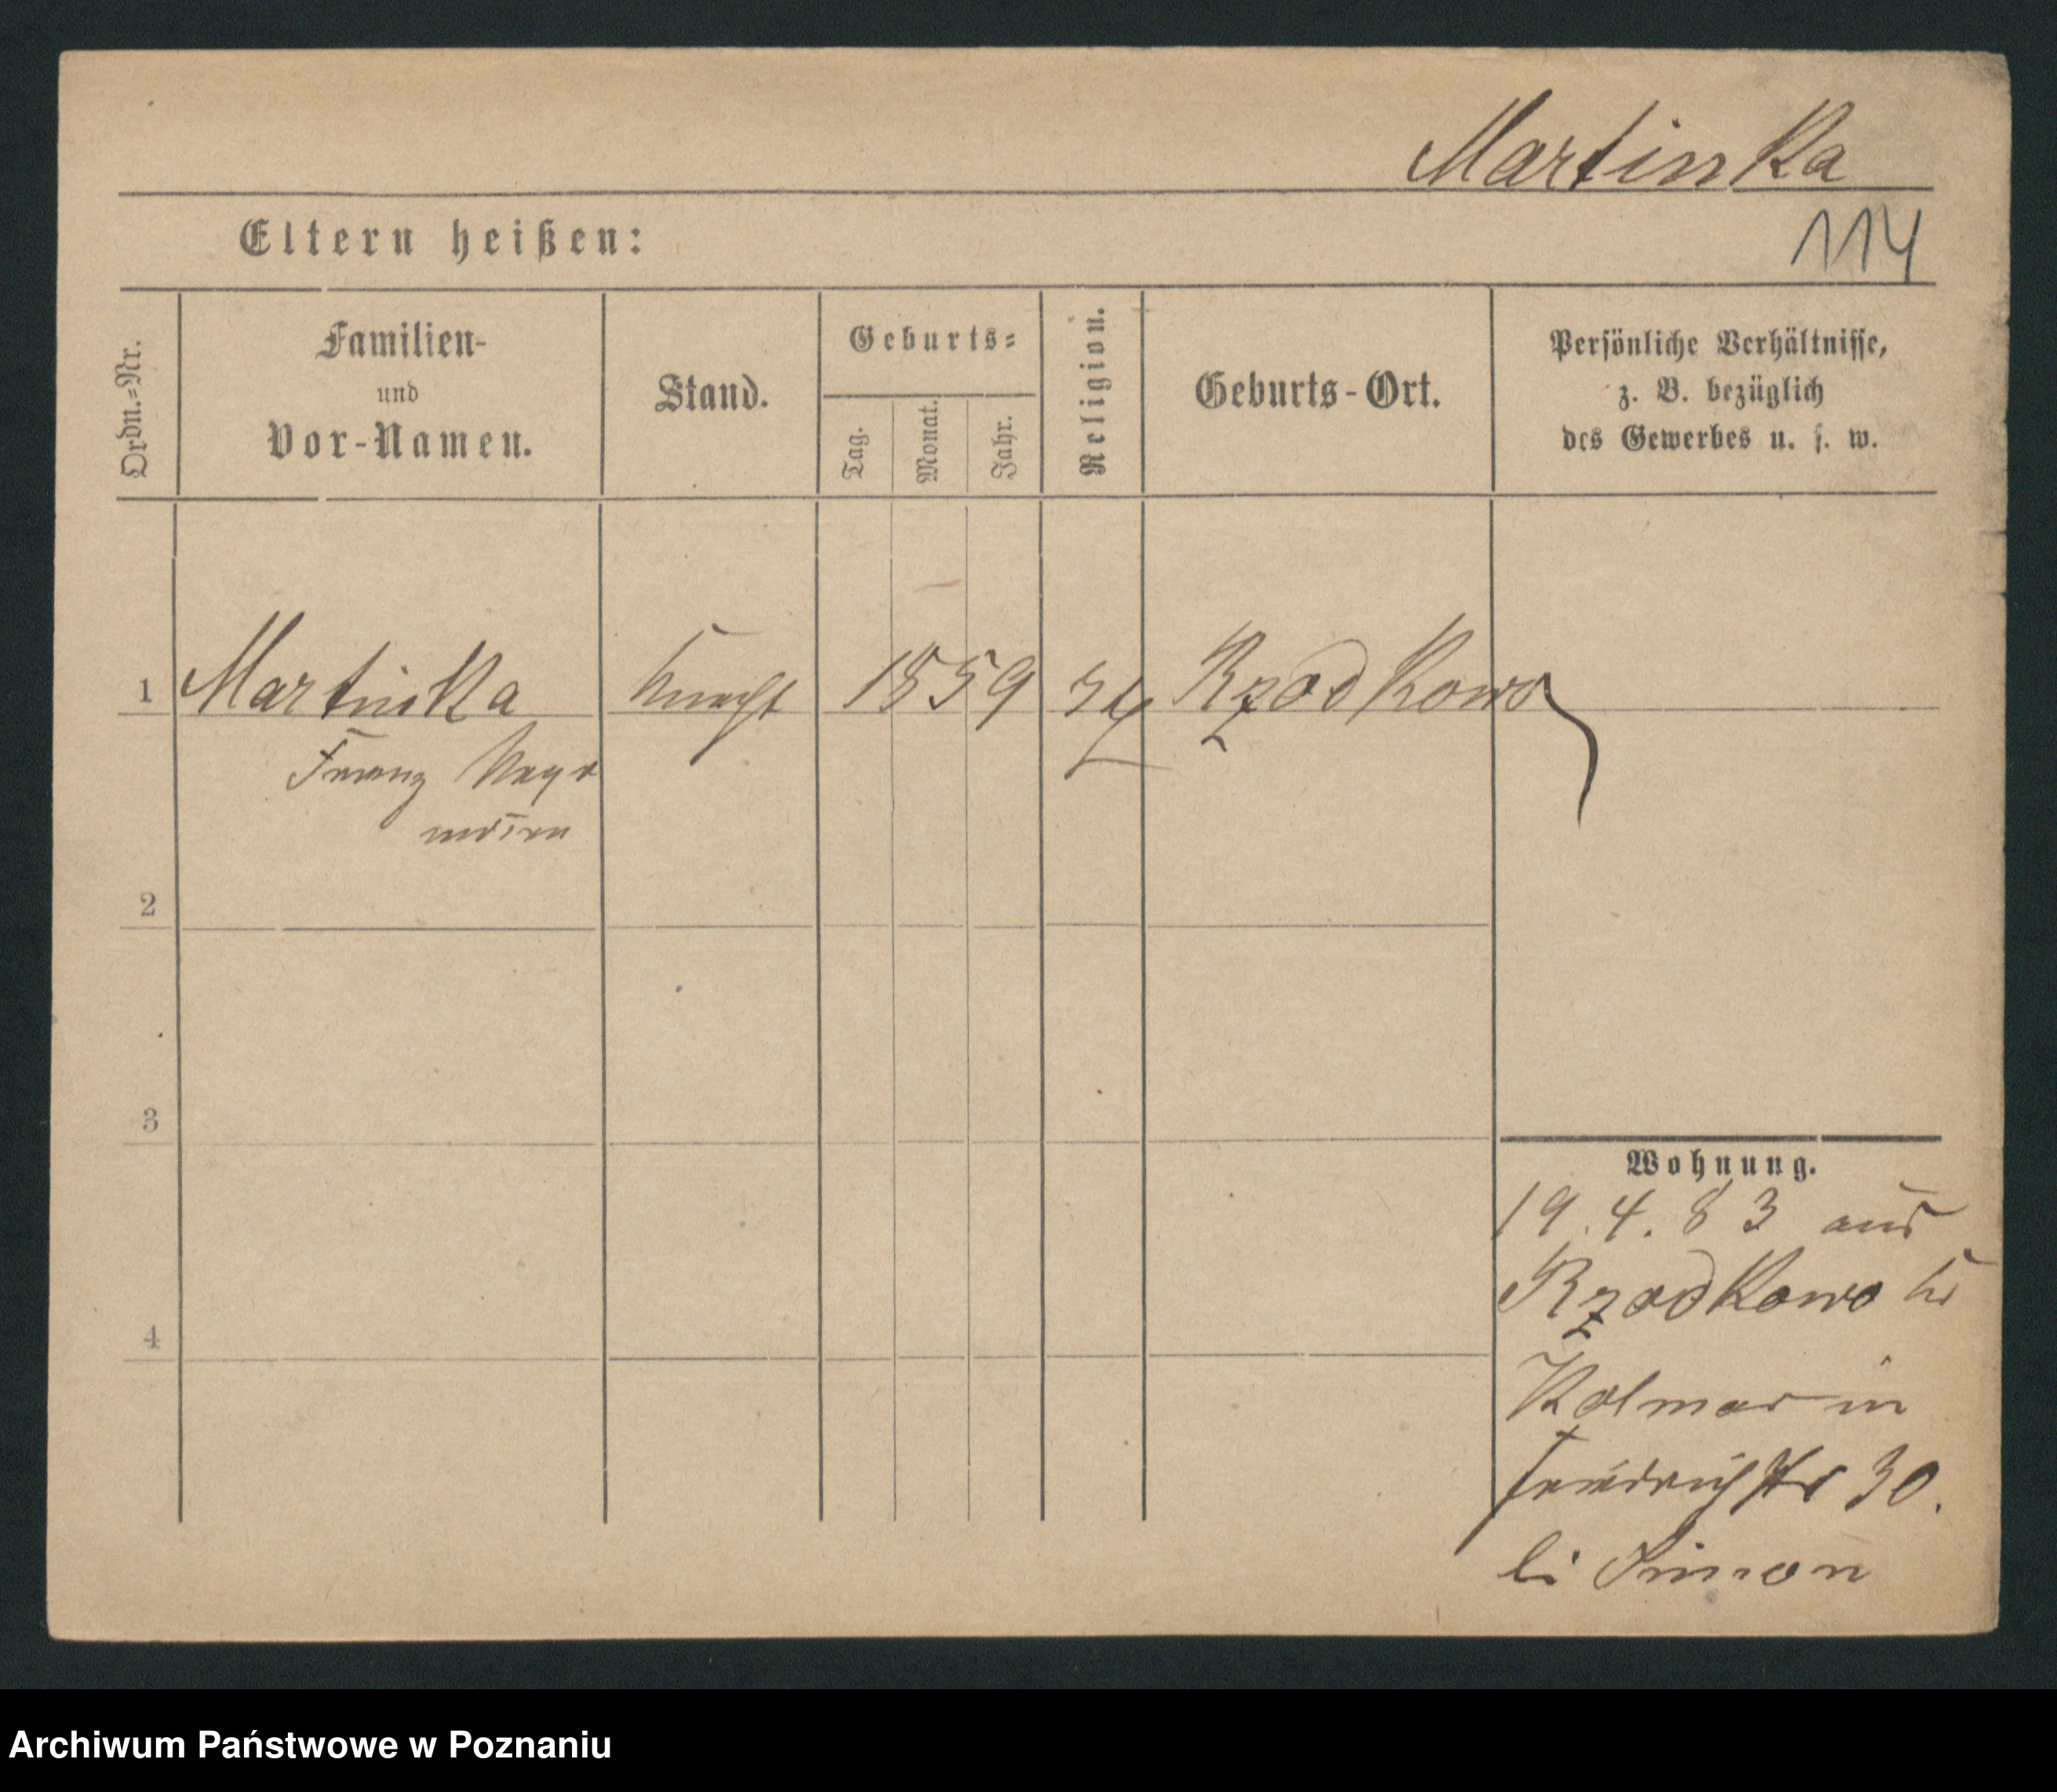 Martinka
Eltern heißen:
114
Ordn.=Nr.
Familien-
und
Vor-Namen.
Stand.
Geburts=
Tag.
Monat.
Jahr.
Religion.
Geburts-Ort.
Persönliche Verhältnisse,
z. B. bezüglich
des Gewerbes u. s. w.
1 Martinka Knecht 1859 Rzadkowo
Franz
2
3
4
Wohnung.
19.4.83 aus
Rzadkowo
Kolmar in
Friedrichstr 30.
bei Simon
Archiwum Państwowe w Poznaniu